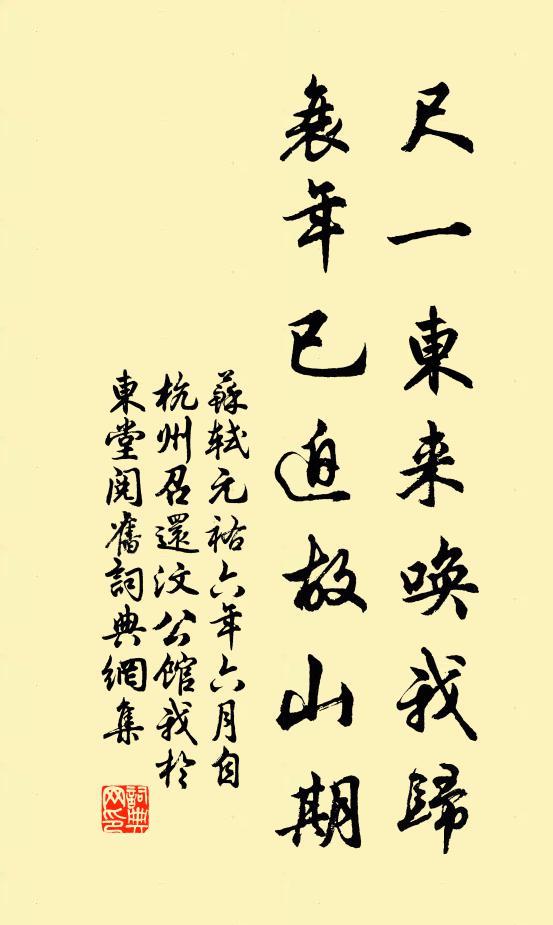 尺一東来喚我歸
衰年已迫故山期
蘇軾元祐六年六月自
杭州召還汶公館我於
東堂閱舊詞典網集
詞典
网印